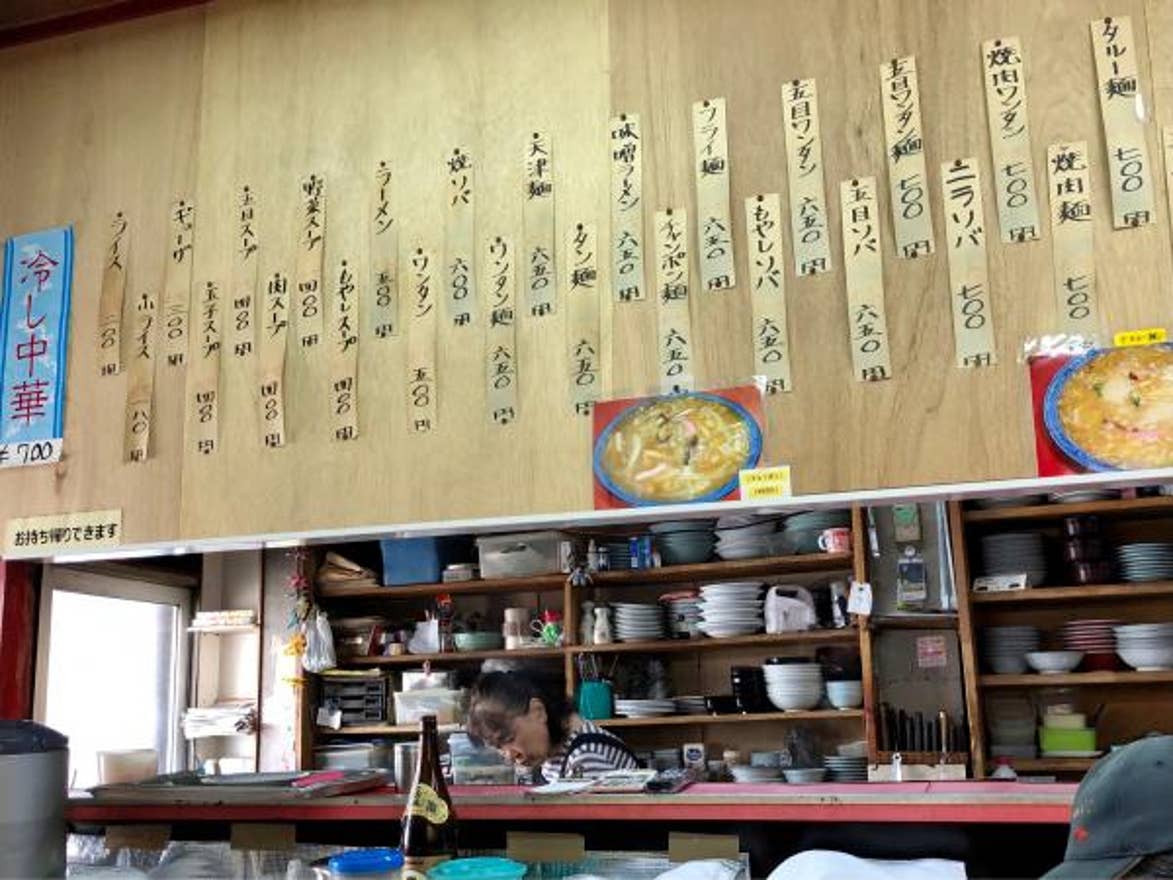 冷し中華
¥700
お持ち帰りできます
ライス 二〇〇円
小ライス 一八〇円
ギョーザ 三〇〇円
玉子スープ 四〇〇円
五目スープ 四〇〇円
肉スープ 四〇〇円
野菜スープ 四〇〇円
もやしスープ 四〇〇円
ラーメン 五〇〇円
ワンタン 五〇〇円
焼ソバ 六〇〇円
ワンタン麺 六五〇円
天津麺 六五〇円
タン麺 六五〇円
味噌ラーメン 六五〇円
チャンポン麺 六五〇円
フライ麺 六五〇円
もやしソバ 六五〇円
五目ワンタン 六五〇円
五目ソバ 六五〇円
五目ワンタン麺 七〇〇円
ニラソバ 七〇〇円
焼肉ワンタン 七〇〇円
焼肉麺 七〇〇円
タルー麺 七〇〇円